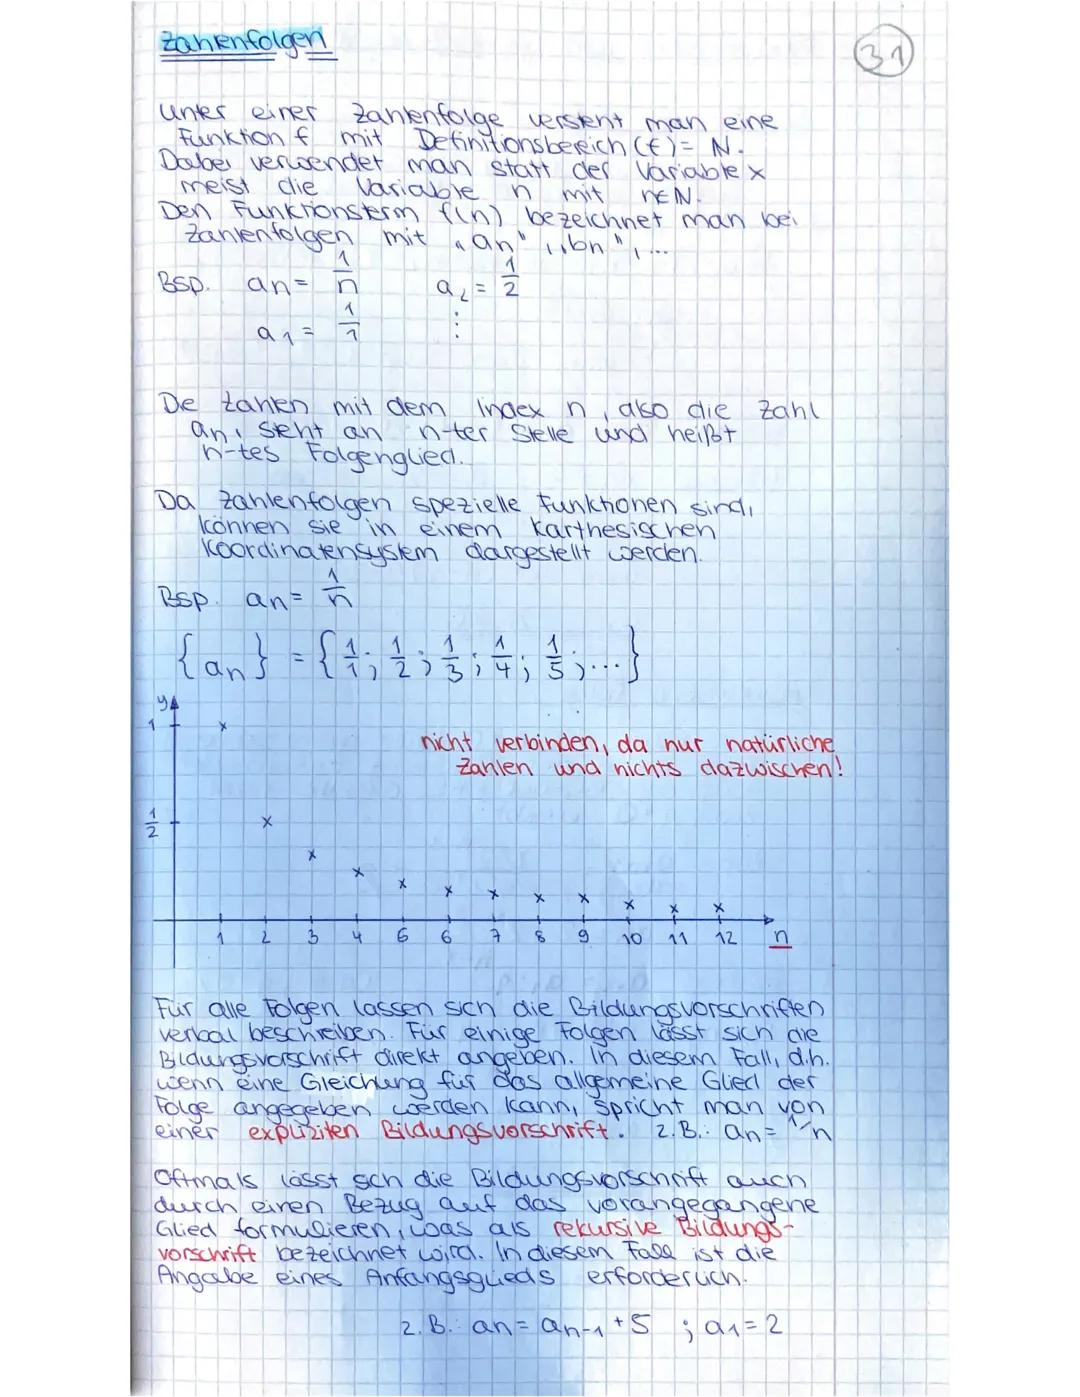 Zahlenfolgen
31
Unter einer Zahlenfolge versteht man eine
Funktion f mit Definitionsbereich (f) = N.
Dabei verwendet man statt der Variable x
meist die Variable n mit n∈N.
Den Funktionsterm f(n) bezeichnet man bei
Zahlenfolgen mit „an", „bn", ...
Bsp. an = 1/n a₂ = 1/2
a₁ = 1/1 ⋮
Die Zahlen mit dem Index n, also die Zahl
an, steht an n-ter Stelle und heißt
n-tes Folgenglied.
Da Zahlenfolgen spezielle Funktionen sind,
können sie in einem Karthesischen
Koordinatensystem dargestellt werden.
Bsp. an = 1/n
{an} = {1/1; 1/2; 1/3; 1/4; 1/5; ...}
y
1
nicht verbinden, da nur natürliche
Zahlen und nichts dazwischen!
1/2
1 2 3 4 6 6 7 8 9 10 11 12 n
Für alle Folgen lassen sich die Bildungsvorschriften
verbal beschreiben. Für einige Folgen lässt sich die
Bildungsvorschrift direkt angeben. In diesem Fall, d.h.
wenn eine Gleichung für das allgemeine Glied der
Folge angegeben werden kann, spricht man von
einer expliziten Bildungsvorschrift. z.B.: an = 1/n
Oftmals lässt sich die Bildungsvorschrift auch
durch einen Bezug auf das vorangegangene
Glied formulieren, was als rekursive Bildungs-
vorschrift bezeichnet wird. In diesem Fall ist die
Angabe eines Anfangsglieds erforderlich.
z.B.: an = an-1 + 5 ; a₁ = 2